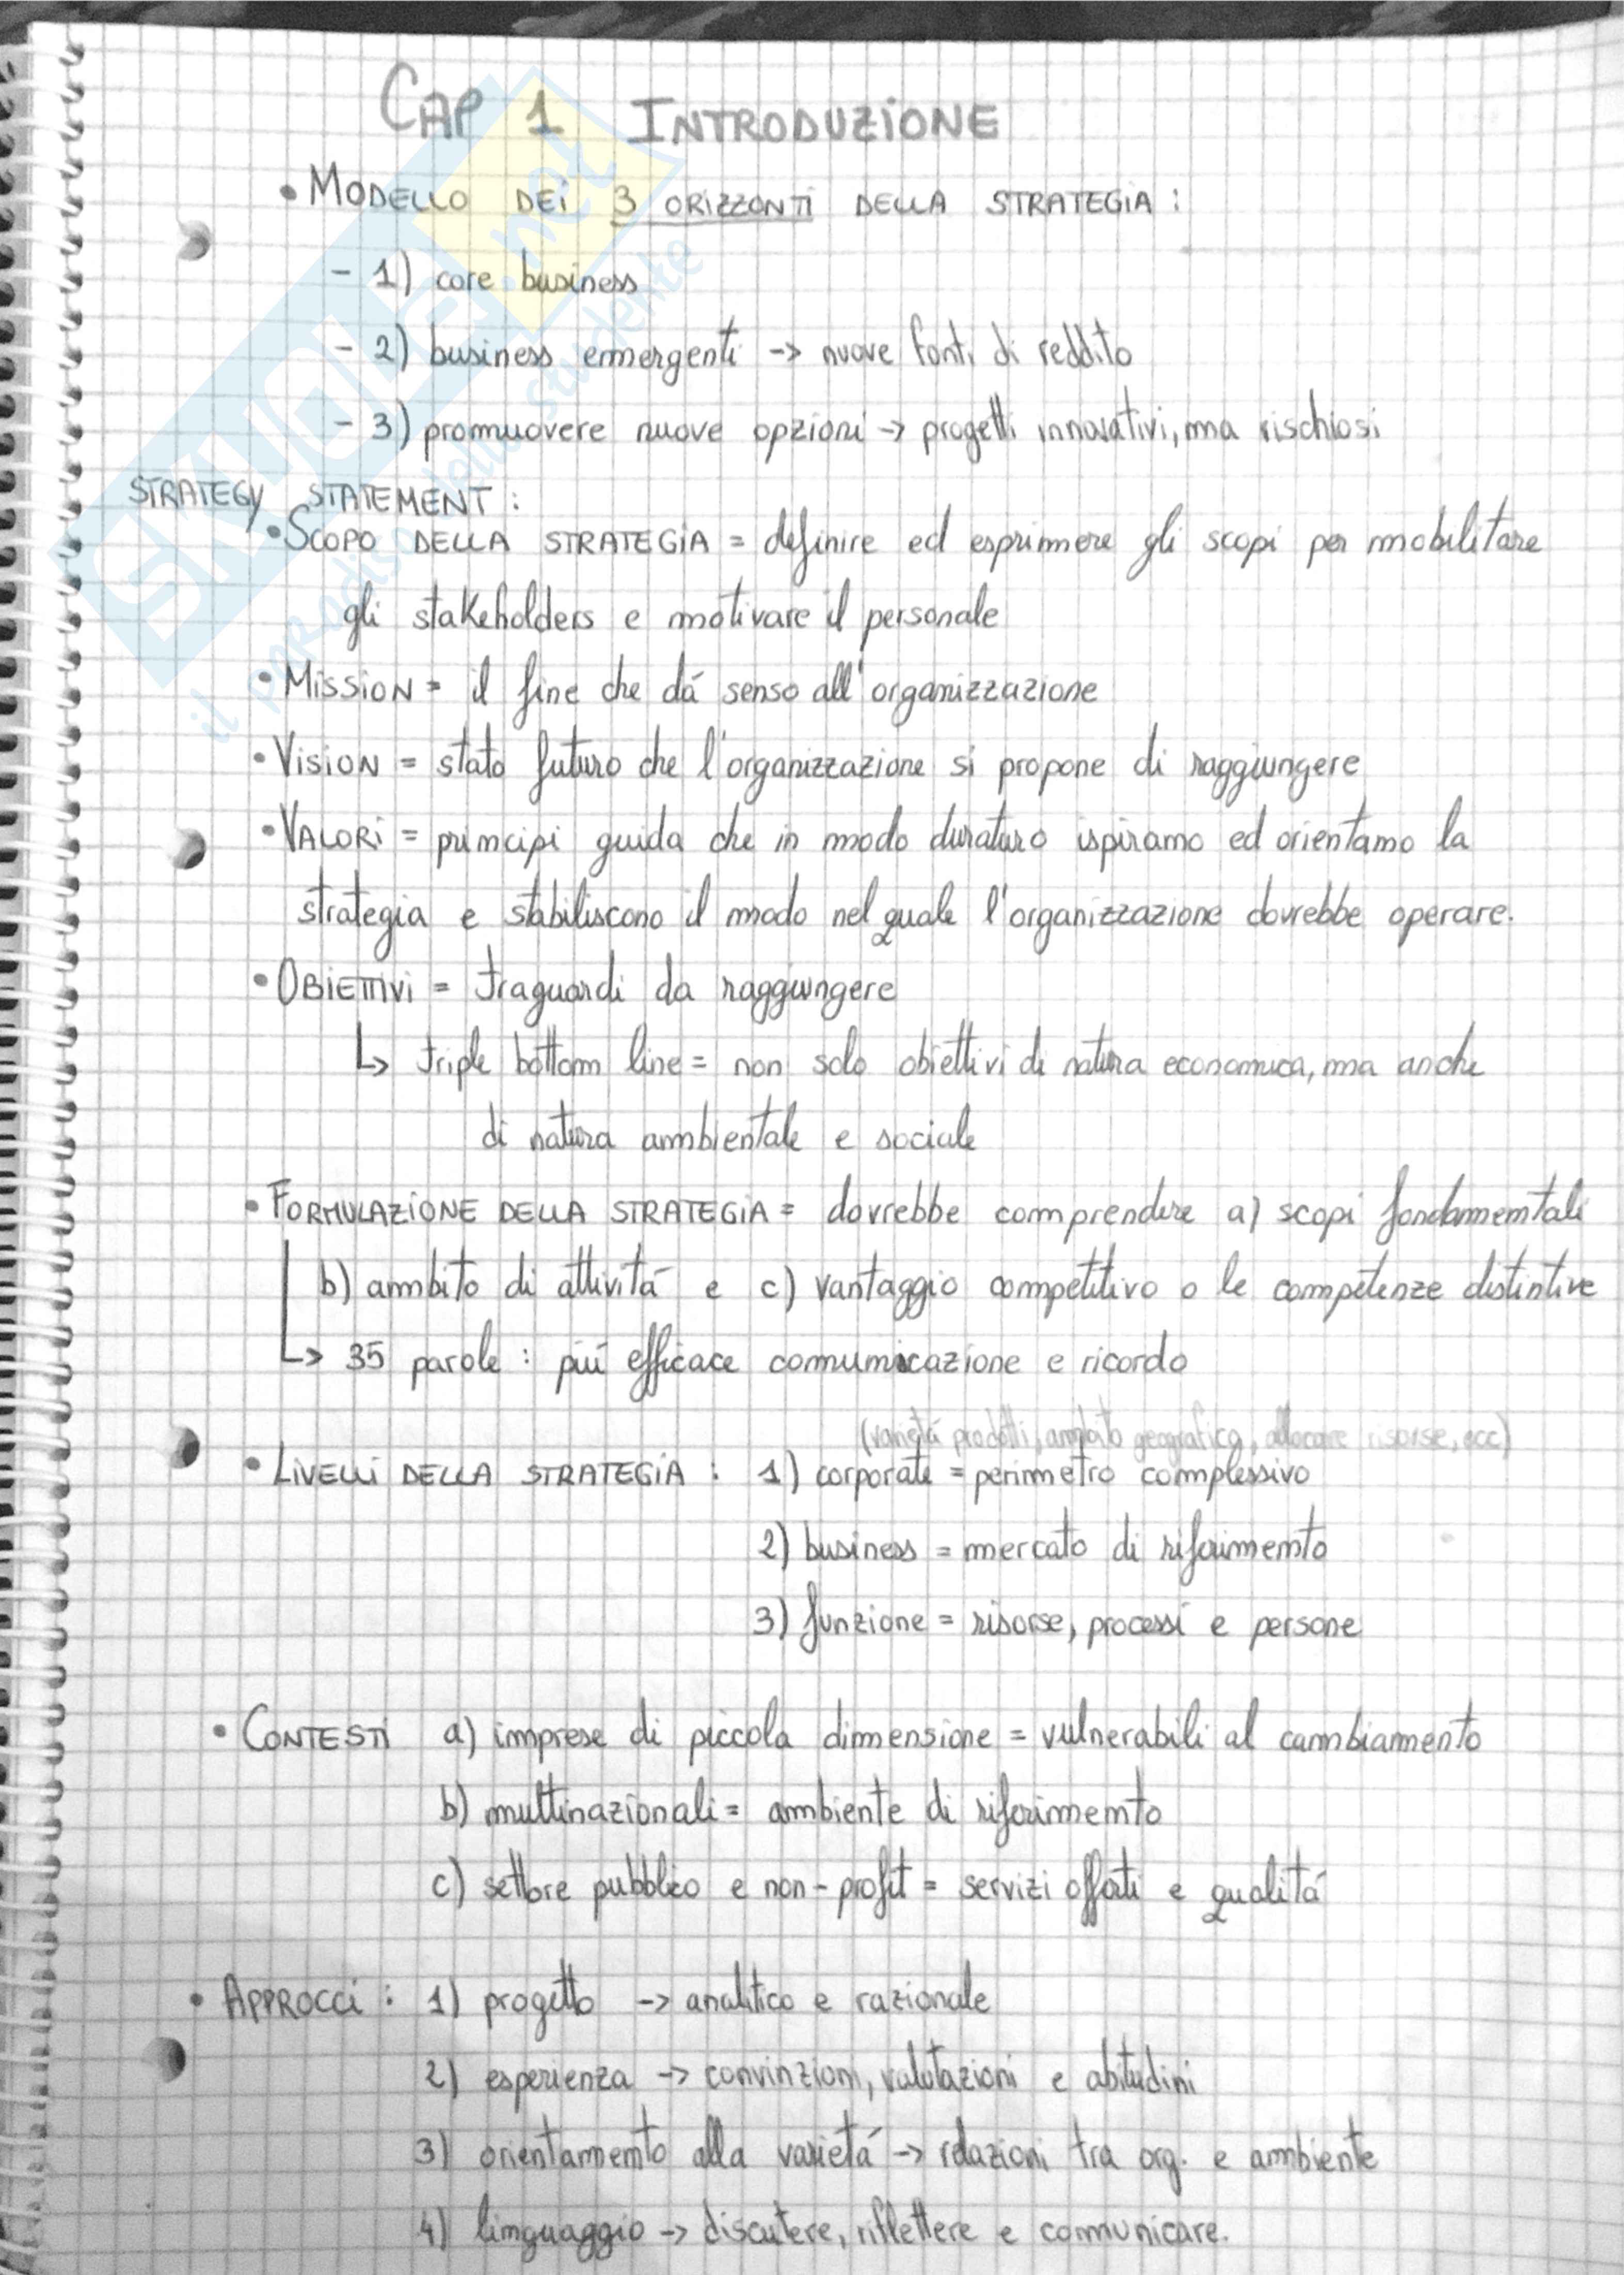 CAP 1 INTRODUZIONE
• MODELLO DEI 3 ORIZZONTI DELLA STRATEGIA :
- 1) core business
- 2) business emergenti -> nuove fonti di reddito
- 3) promuovere nuove opzioni -> progetti innovativi, ma rischiosi
STRATEGY STATEMENT :
• SCOPO DELLA STRATEGIA = definire ed esprimere gli scopi per mobilitare
gli stakeholders e motivare il personale
• MISSION = il fine che dá senso all'organizzazione
• VISION = stato futuro che l'organizzazione si propone di raggiungere
• VALORI = principi guida che in modo duraturo ispirano ed orientano la
strategia e stabiliscono il modo nel quale l'organizzazione dovrebbe operare.
• OBIETTIVI = traguardi da raggiungere
↳ triple bottom line = non solo obiettivi di natura economica, ma anche
di natura ambientale e sociale
• FORMULAZIONE DELLA STRATEGIA = dovrebbe comprendere a) scopi fondamentali
b) ambito di attivitá e c) vantaggio competitivo o le competenze distintive
↳ 35 parole : piú efficace comunicazione e ricordo
(varietá prodotti, ambito geografico, allocare risorse, ecc)
• LIVELLI DELLA STRATEGIA : 1) corporate = perimetro complessivo
2) business = mercato di riferimento
3) funzione = risorse, processi e persone
• CONTESTI a) imprese di piccola dimensione = vulnerabili al cambiamento
b) multinazionali = ambiente di riferimento
c) settore pubblico e non-profit = servizi offerti e qualitá
• APPROCCI : 1) progetto -> analitico e razionale
2) esperienza -> convinzioni, valutazioni e abitudini
3) orientamento alla varietá -> relazioni tra org. e ambiente
4) linguaggio -> discutere, riflettere e comunicare.
SKUOLA.net
il paradiso dello studente